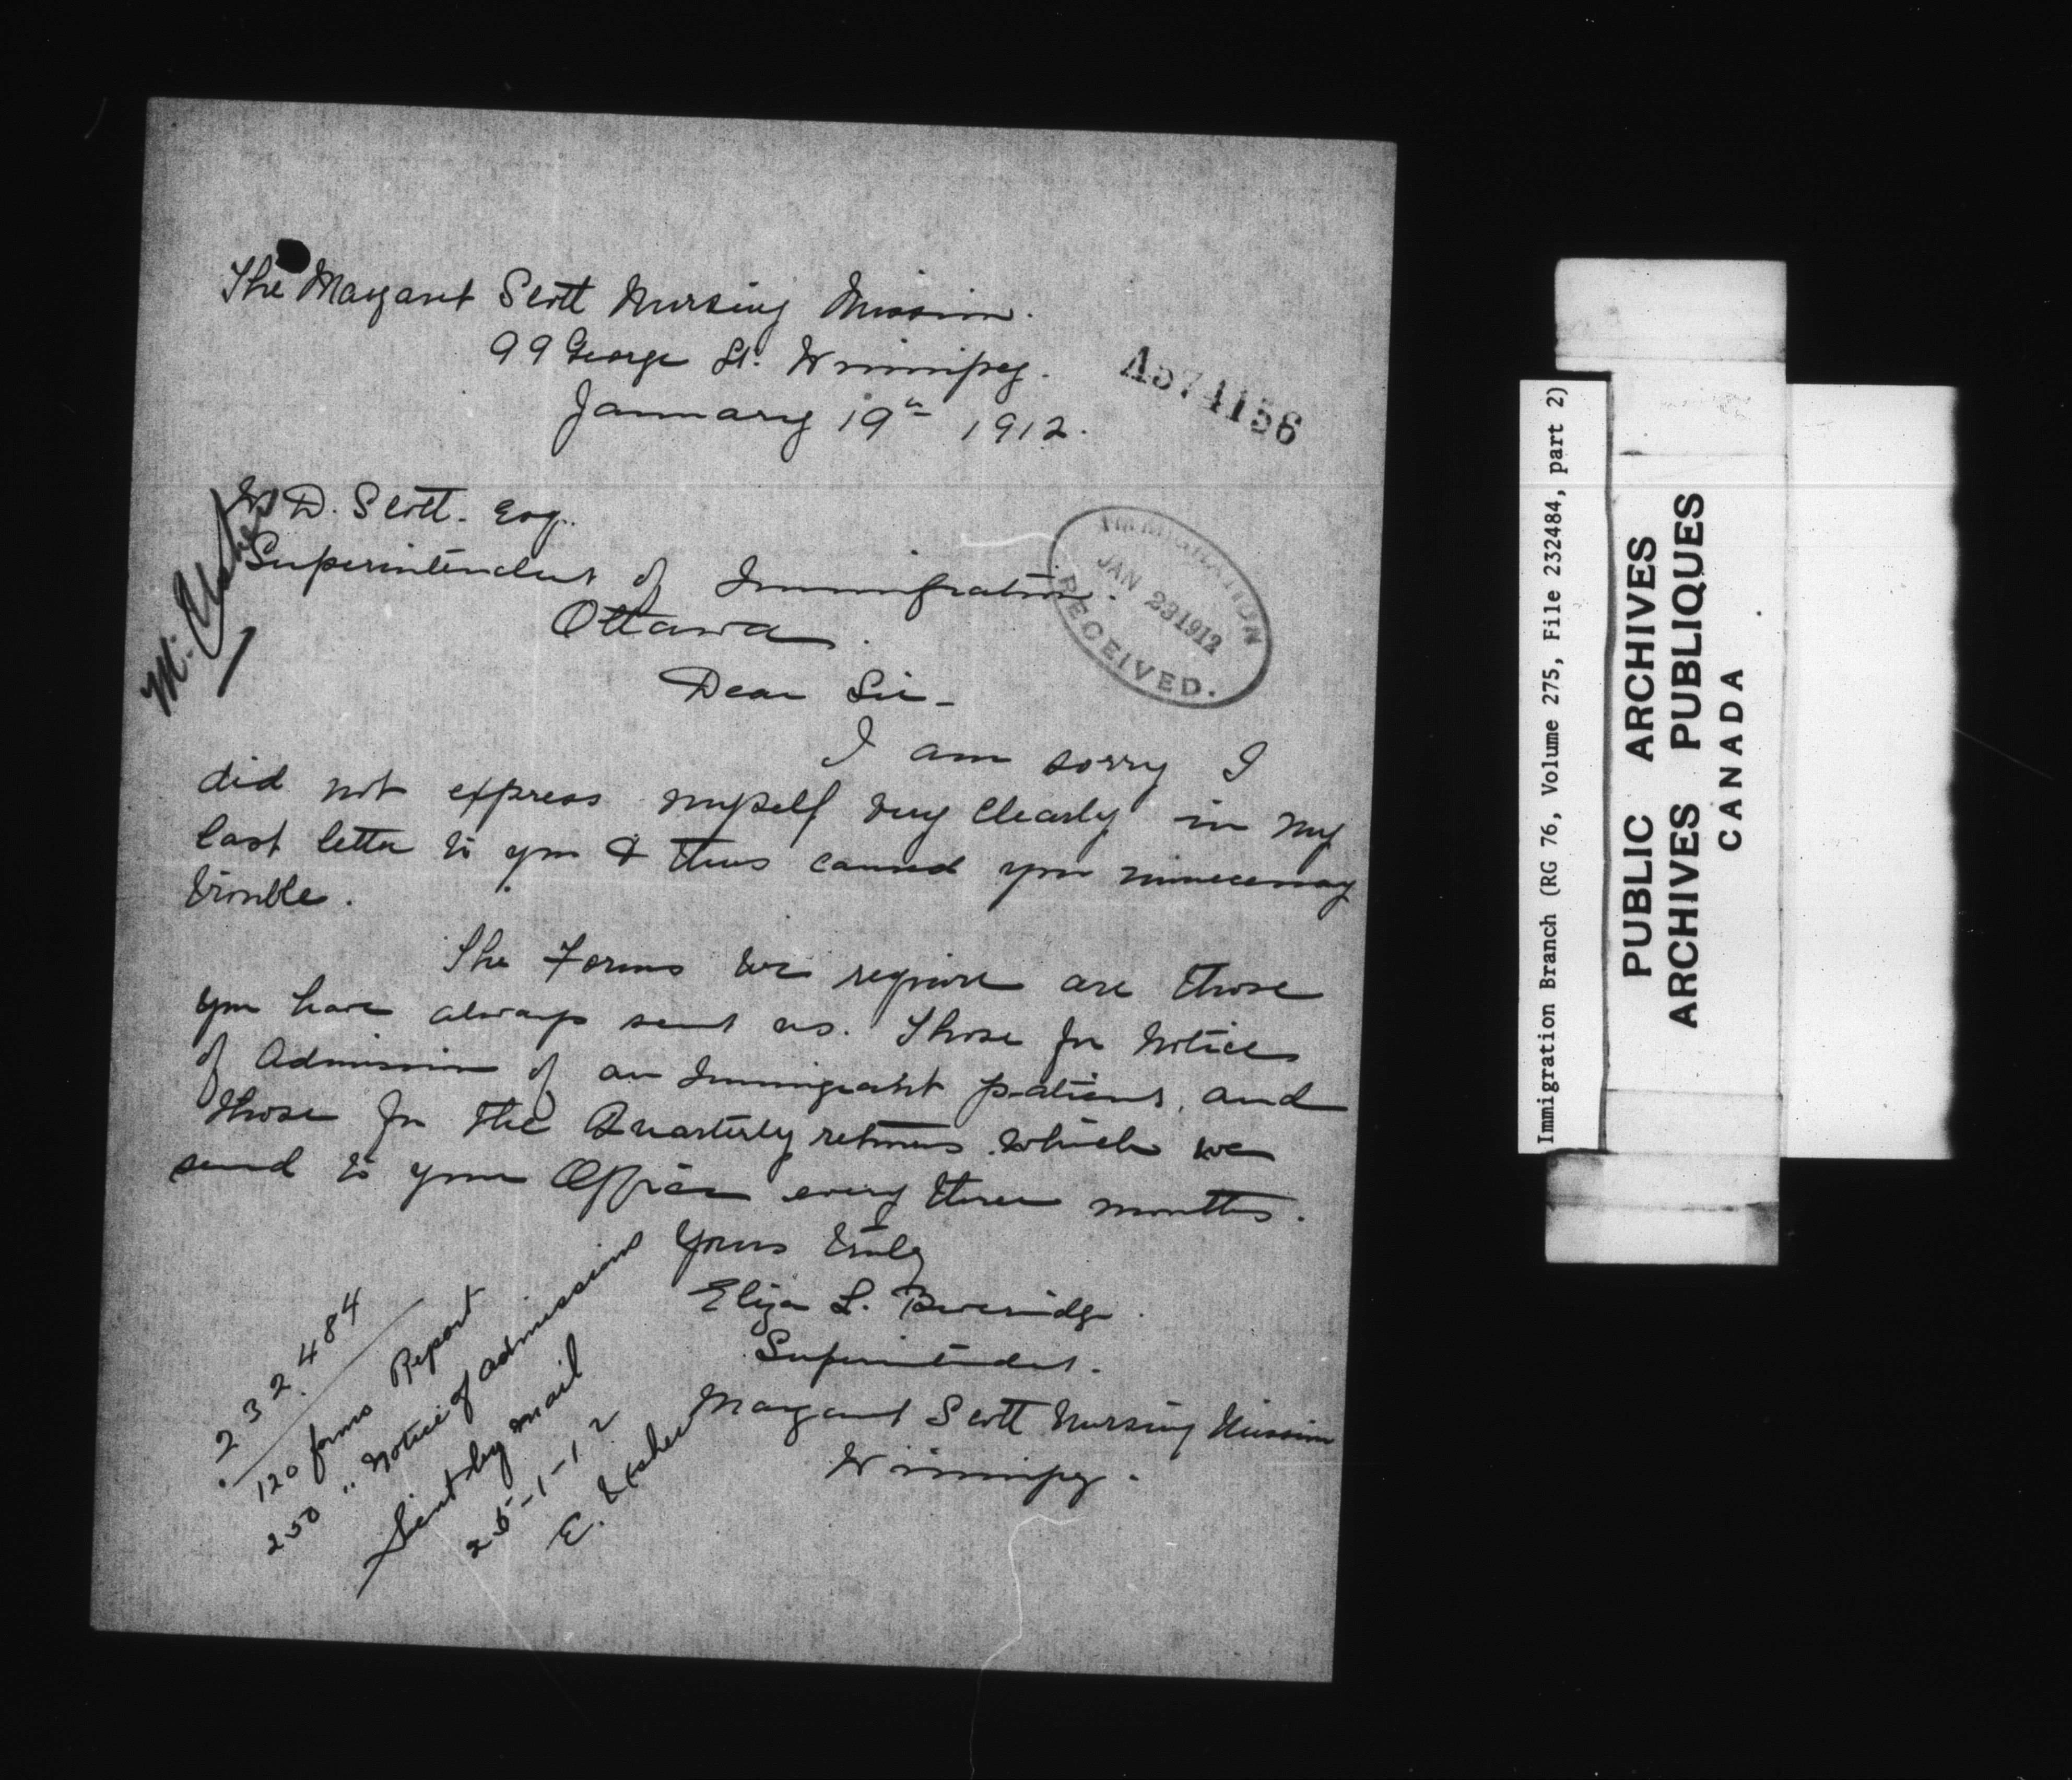 The Margaret Scott Nursing Mission.
99 George St. Winnipeg.
January 19th 1912.
A574156
W D. Scott. Esq.
Superintendent of Immigration.
Ottawa.
IMMIGRATION
JAN 23 1912
RECEIVED.
Dear Sir -
I am sorry I
did not express myself very clearly in my
last letter to you & thus caused you unnecessary
trouble.
The Forms we require are those
you have always sent us. Those for Notice
of Admission of an Immigrant patient, and
those for the Quarterly returns which we
send to your Office every three months.
Yours truly
Eliza L. Beveridge.
Superintendent.
Margaret Scott Nursing Mission
Winnipeg.
232484
120 forms Report
250 " Notice of admission
Sent by mail
25-1-12
E.
Immigration Branch (RG 76, Volume 275, File 232484, part 2)
PUBLIC ARCHIVES
ARCHIVES PUBLIQUES
CANADA